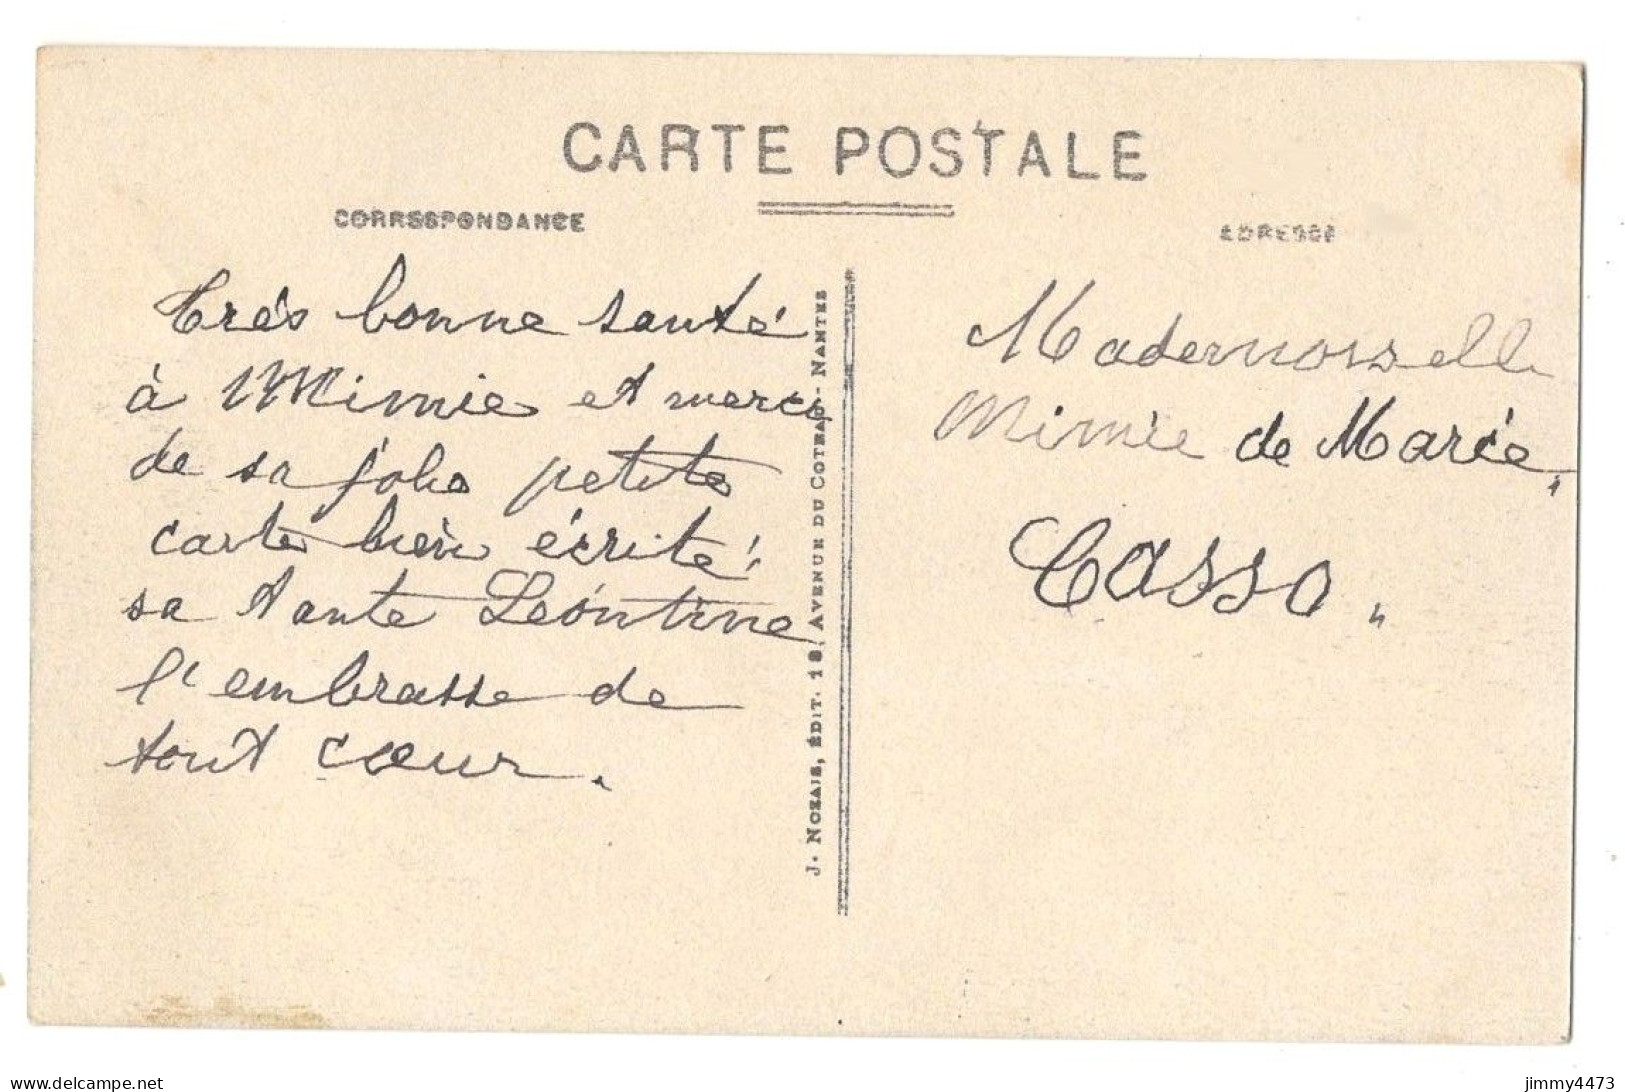 CARTE POSTALE
CORRESPONDANCE
ADRESSE
Trés bonne santé
à Mimie et merci
de sa jolie petite
carte bien écrite,
sa tante Leóntine
l'embrasse de
tout cœur.
J. NOZAIS, ÉDIT. 18, AVENUE DU COTEAU - NANTES
Mademoiselle
Mimie de Marie
Casso
delcampe.net
jimmy4473